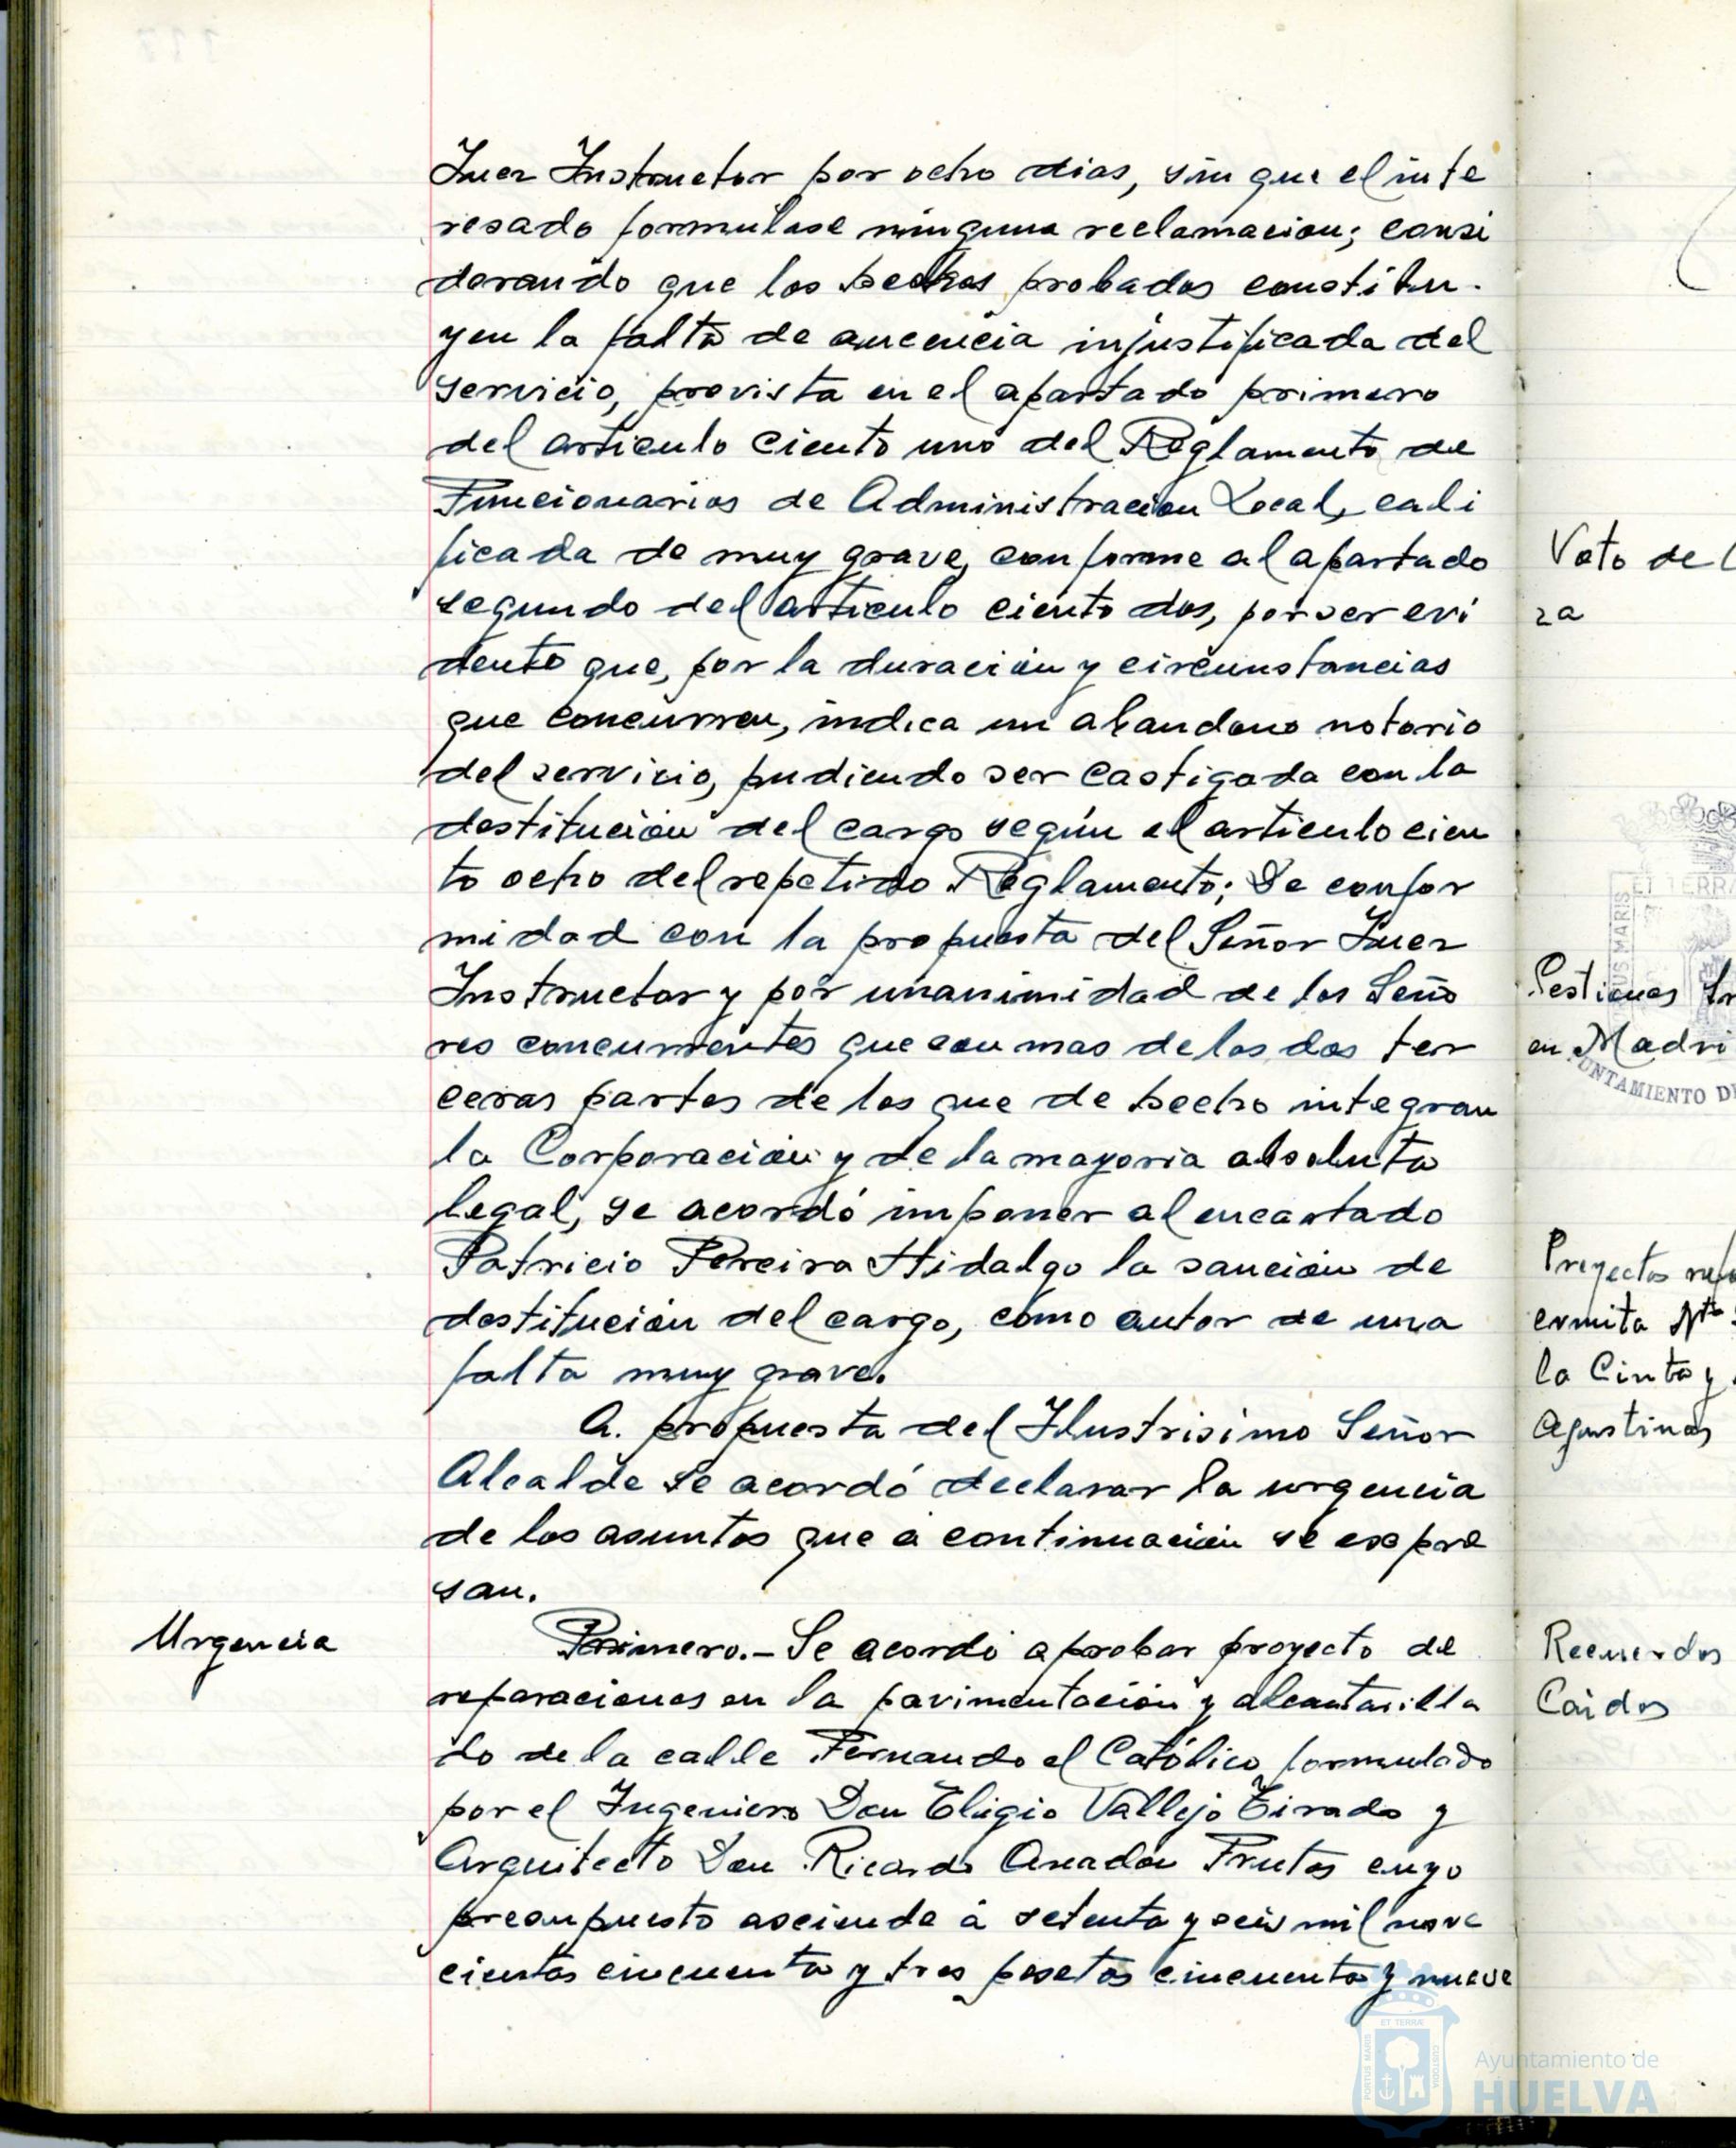 Juez Instructor por ocho dias, sin que el inte
resado formulase ninguna reclamacion; consi
derando que los hechos probados constitu-
yen la falta de aucencia injustificada del
servicio, prevista en el apartado primero
del articulo ciento uno del Reglamento de
Funcionarios de Administracion Local, cali
ficada de muy grave, conforme al apartado
segundo del articulo ciento dos, por ser evi
dente que, por la duración y circunstancias
que concurren, indica un abandono notorio
del servicio, pudiendo ser castigada con la
destitución del cargo según el articulo cien
to ocho del repetido Reglamento; De confor
midad con la propuesta del Señor Juez
Instructor y por unanimidad de los Seño
res concurrentes que son mas de las dos ter
ceras partes de los que de hecho integran
la Corporación y de la mayoria absoluta
legal, se acordó imponer al encartado
Patricio Pereira Hidalgo la sanción de
destitución del cargo, como autor de una
falta muy grave.
A. propuesta del Ilustrisimo Señor
Alcalde se acordó declarar la urgencia
de los asuntos que a continuación se expre
san.
Urgencia
Primero.- Se acordó aprobar proyecto de
reparaciones en la pavimentación y alcantarilla
do de la calle Fernando el Católico formulado
por el Ingeniero Don Eligio Vallejo Tirado y
Arquitecto Don Ricardo Anadón Frutos cuyo
presupuesto asciende a setenta y seis mil nove
cientas cincuenta y tres pesetas cincuenta y nueve
Voto de
za
Gestiones
en Madri
Proyectos
ermita Ntª
la Cinta y
Agustinas
Recuerdos
Caidos
ET TERRA
US MARIS
UNTAMIENTO D
ET TERRA
PORTUS MARIS
CUSTODIA
Ayuntamiento de
HUELVA